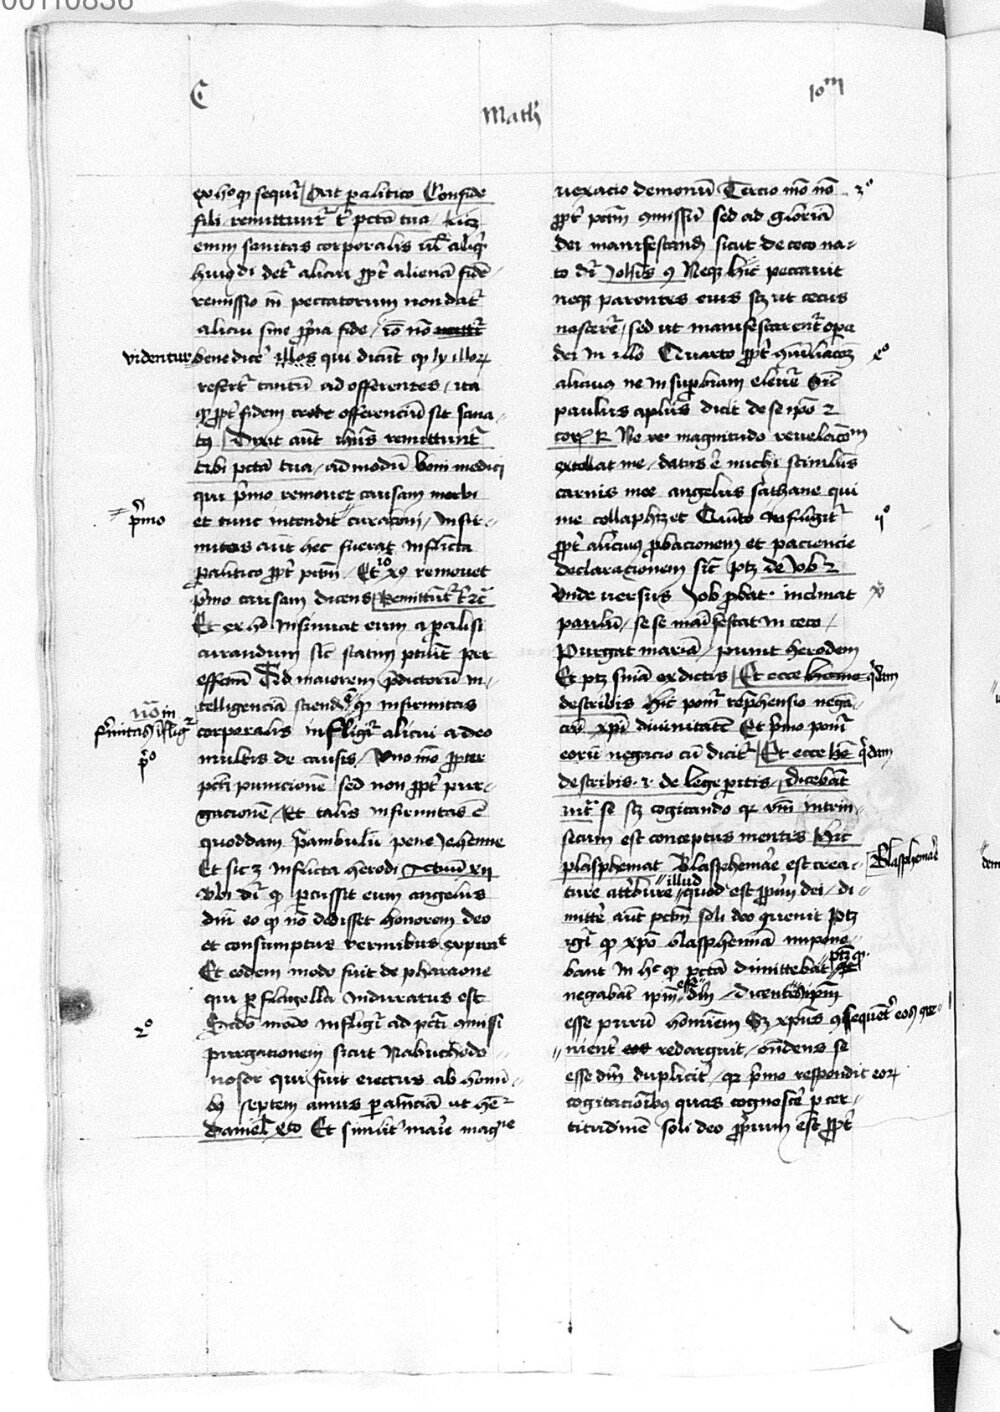 00110836
C
Math
10m
ex hoc quod sequitur Ait paralitico Confide
fili remittuntur tibi peccata tua licet
enim sanitas corporalis vel aliquid
huiusmodi detur alicui propter alienam fidem
remissio tamen peccatorum non datur
alicui sine propria fide / ideo non
videntur bene dicere illos qui dicunt quod ly illorum
refertur tantum ad offerentes / ita
quod propter fidem offerencium sit sana-
tus Dixit autem ihesus remittuntur
tibi peccata tua / ad modum boni medici
qui primo removet causam morbi
primo
et tunc intendit curacioni / Infir-
mitas autem hec fuerat inflicta
paralitico propter peccatum / Et ideo xpus removet
primo causam dicens Remittuntur tibi etc
Et ex hoc insinuat eum a paralisi
curandum sicut statim per
effectum Ad maiorem predictorum in-
telligenciam sciendum quod infirmitas
corporalis infligitur alicui a deo
multis de causis / Uno modo propter
primo
peccati punicionem sed non propter pur-
gacionem / Et talis infirmitas est
quoddam preambulum pene Jehenne
Et sic inflicta herodi Actuum xii
Ubi dicitur quod percussit eum angelus
domini eo quod non dedisset honorem deo
et consumptus vermibus expiravit
Et eodem modo fuit de pharaone
qui per flagella induratus est
2o
Secundo modo infligitur ad peccati commissi
purgacionem sicut Nabuchodo-
nosor qui fuit eiectus ab homi-
bus septem annis per ut habetur
Daniel Et similiter marie magdalene
vexacio demonum Tercio modo non
3o
propter peccatum commissum sed ad gloriam
dei manifestandam sicut de ceco na-
to dicitur Johannis 9 Neque hic peccavit
neque parentes eius scilicet ut cecus
nasceretur / sed ut manifestarentur opera
dei in illo Quarto propter humiliacionem
alicuius ne in superbiam elevetur Sicut
paulus apostolus dicit de se ipso 2
cor Ne me magnitudo revelacionum
extollat me / datus est michi stimulus
carnis mee angelus sathane qui
me collaphizet Quinto infligitur
propter alicuius probacionem et paciencie
declaracionem sicut patet de Job 2
Unde versus Job probat inclinat
paulum / sese manifestat in ceco /
Purgat mariam / punit herodem
Et patet sentencia ex dictis Et ecce quidam
de scribis Hic ponitur reprehensio nega-
cionis xpi divinitatem Et primo ponitur
eorum negacio cum dicitur Et ecce quidam
de scribis id est de lege peritis / dicebant
intra se scilicet cogitando quia
secum est conceptus mentis Hic
blasphemat Blasphemare est crea-
Blasphemare
ture attribuere illud quod est proprium dei / di-
mittere autem peccatum soli deo convenit patet
igitur quod xpo blasphemiam impone-
bant in hoc quod peccata dimittebat
negabant ipsum esse deum / dicentes ipsum
esse purum hominem Sed xpus consequenter eos
redarguit / ostendens se
esse deum dupliciter / quia primo respondit eorum
cogitacionibus quas cognoscere per cer-
titudinem soli deo proprium est propter